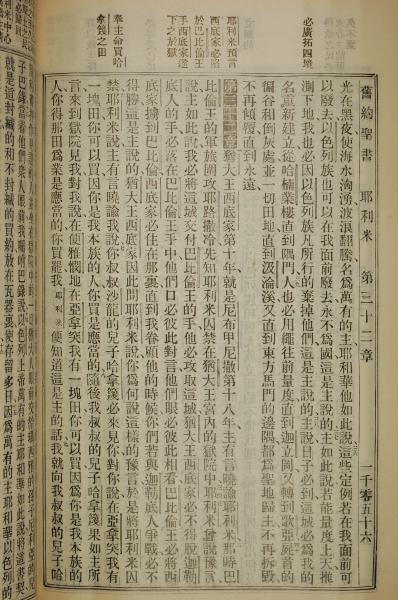 舊約聖書 耶利米 第三十二章 一千零五十六
必廣拓四境
光在黑夜使海水洶湧波浪翻騰名爲萬有的主耶和華他如此說這些定例若在我面前可
以廢去以色列族也可以在我面前廢去永不爲國這是主說的主如此說若能量度上天推
測下地我也必因以色列族凡所行的棄掉他們這是主說的主說日子必到這城必爲我的
名重新建立從哈楠業樓直到隅門人也必用繩往前量度直到迦立岡又轉到歌亞屍首的
偏谷和倒灰處並一切田地直到汲淪溪又直到東方馬門的邊隅都爲聖地歸主不再拆毀
不再傾覆直到永遠
耶利米預言
西底家必
於巴比倫王
西底家遂
下之於獄
第三十二章猶大王西底家第十年就是尼布甲尼撒第十八年主有言曉諭耶利米那時巴
比倫王的軍旅圍攻耶路撒冷先知耶利米囚禁在猶大王宮內的獄院中耶利米曾說豫言
說主如此說我必將這城交付巴比倫王的手他必攻取這城猶大王西底家必不得脫迦勒
底人的手必落在巴比倫王手中他們口必彼此對言他們眼必彼此相看巴比倫王必將西
底家擄到巴比倫西底家必住在那裏直到我眷顧他的時候你們若與迦勒底人爭戰必不
得勝這是主說的猶大王西底家因此問耶利米說你爲何說這樣的豫言於是將耶利米囚
奉主命買哈
拿篾之田
禁耶利米說主有言曉諭我說你叔叔沙龍的兒子哈拿篾必來見你對你說在亞拿突我有
一塊田你可以買因你是我本族的人你買是應當的隨後我叔叔的兒子哈拿篾果如主所
言來到獄院見我對我說在便雅憫地在亞拿突我有一塊田你可以買因爲你是我本族的
人你得那田爲業是應當的你買罷我耶利米便知道這是主的話我就向我叔叔的兒子哈
子巴錄當着他們衆人眼前我囑咐巴錄說以色列上帝萬有的主耶和華如此說將這書契
就是這封緘的和不封緘的買約放在瓦器裏使存留多日因爲萬有的主耶和華以色列的